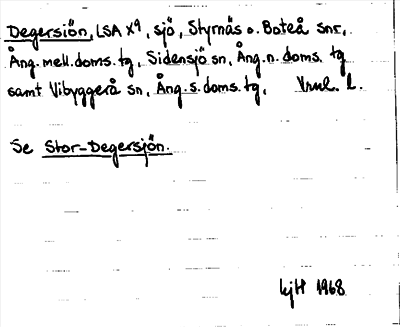 Degersjön, LSA X9, sjö, Styrnäs o. Boteå snr,
Ång. mell. doms. tg, Sidensjö sn, Ång. n. doms. tg
samt Vibyggerå sn, Ång. s. doms. tg, Vnrl. l.
Se Stor-Degersjön.
LjH 1968